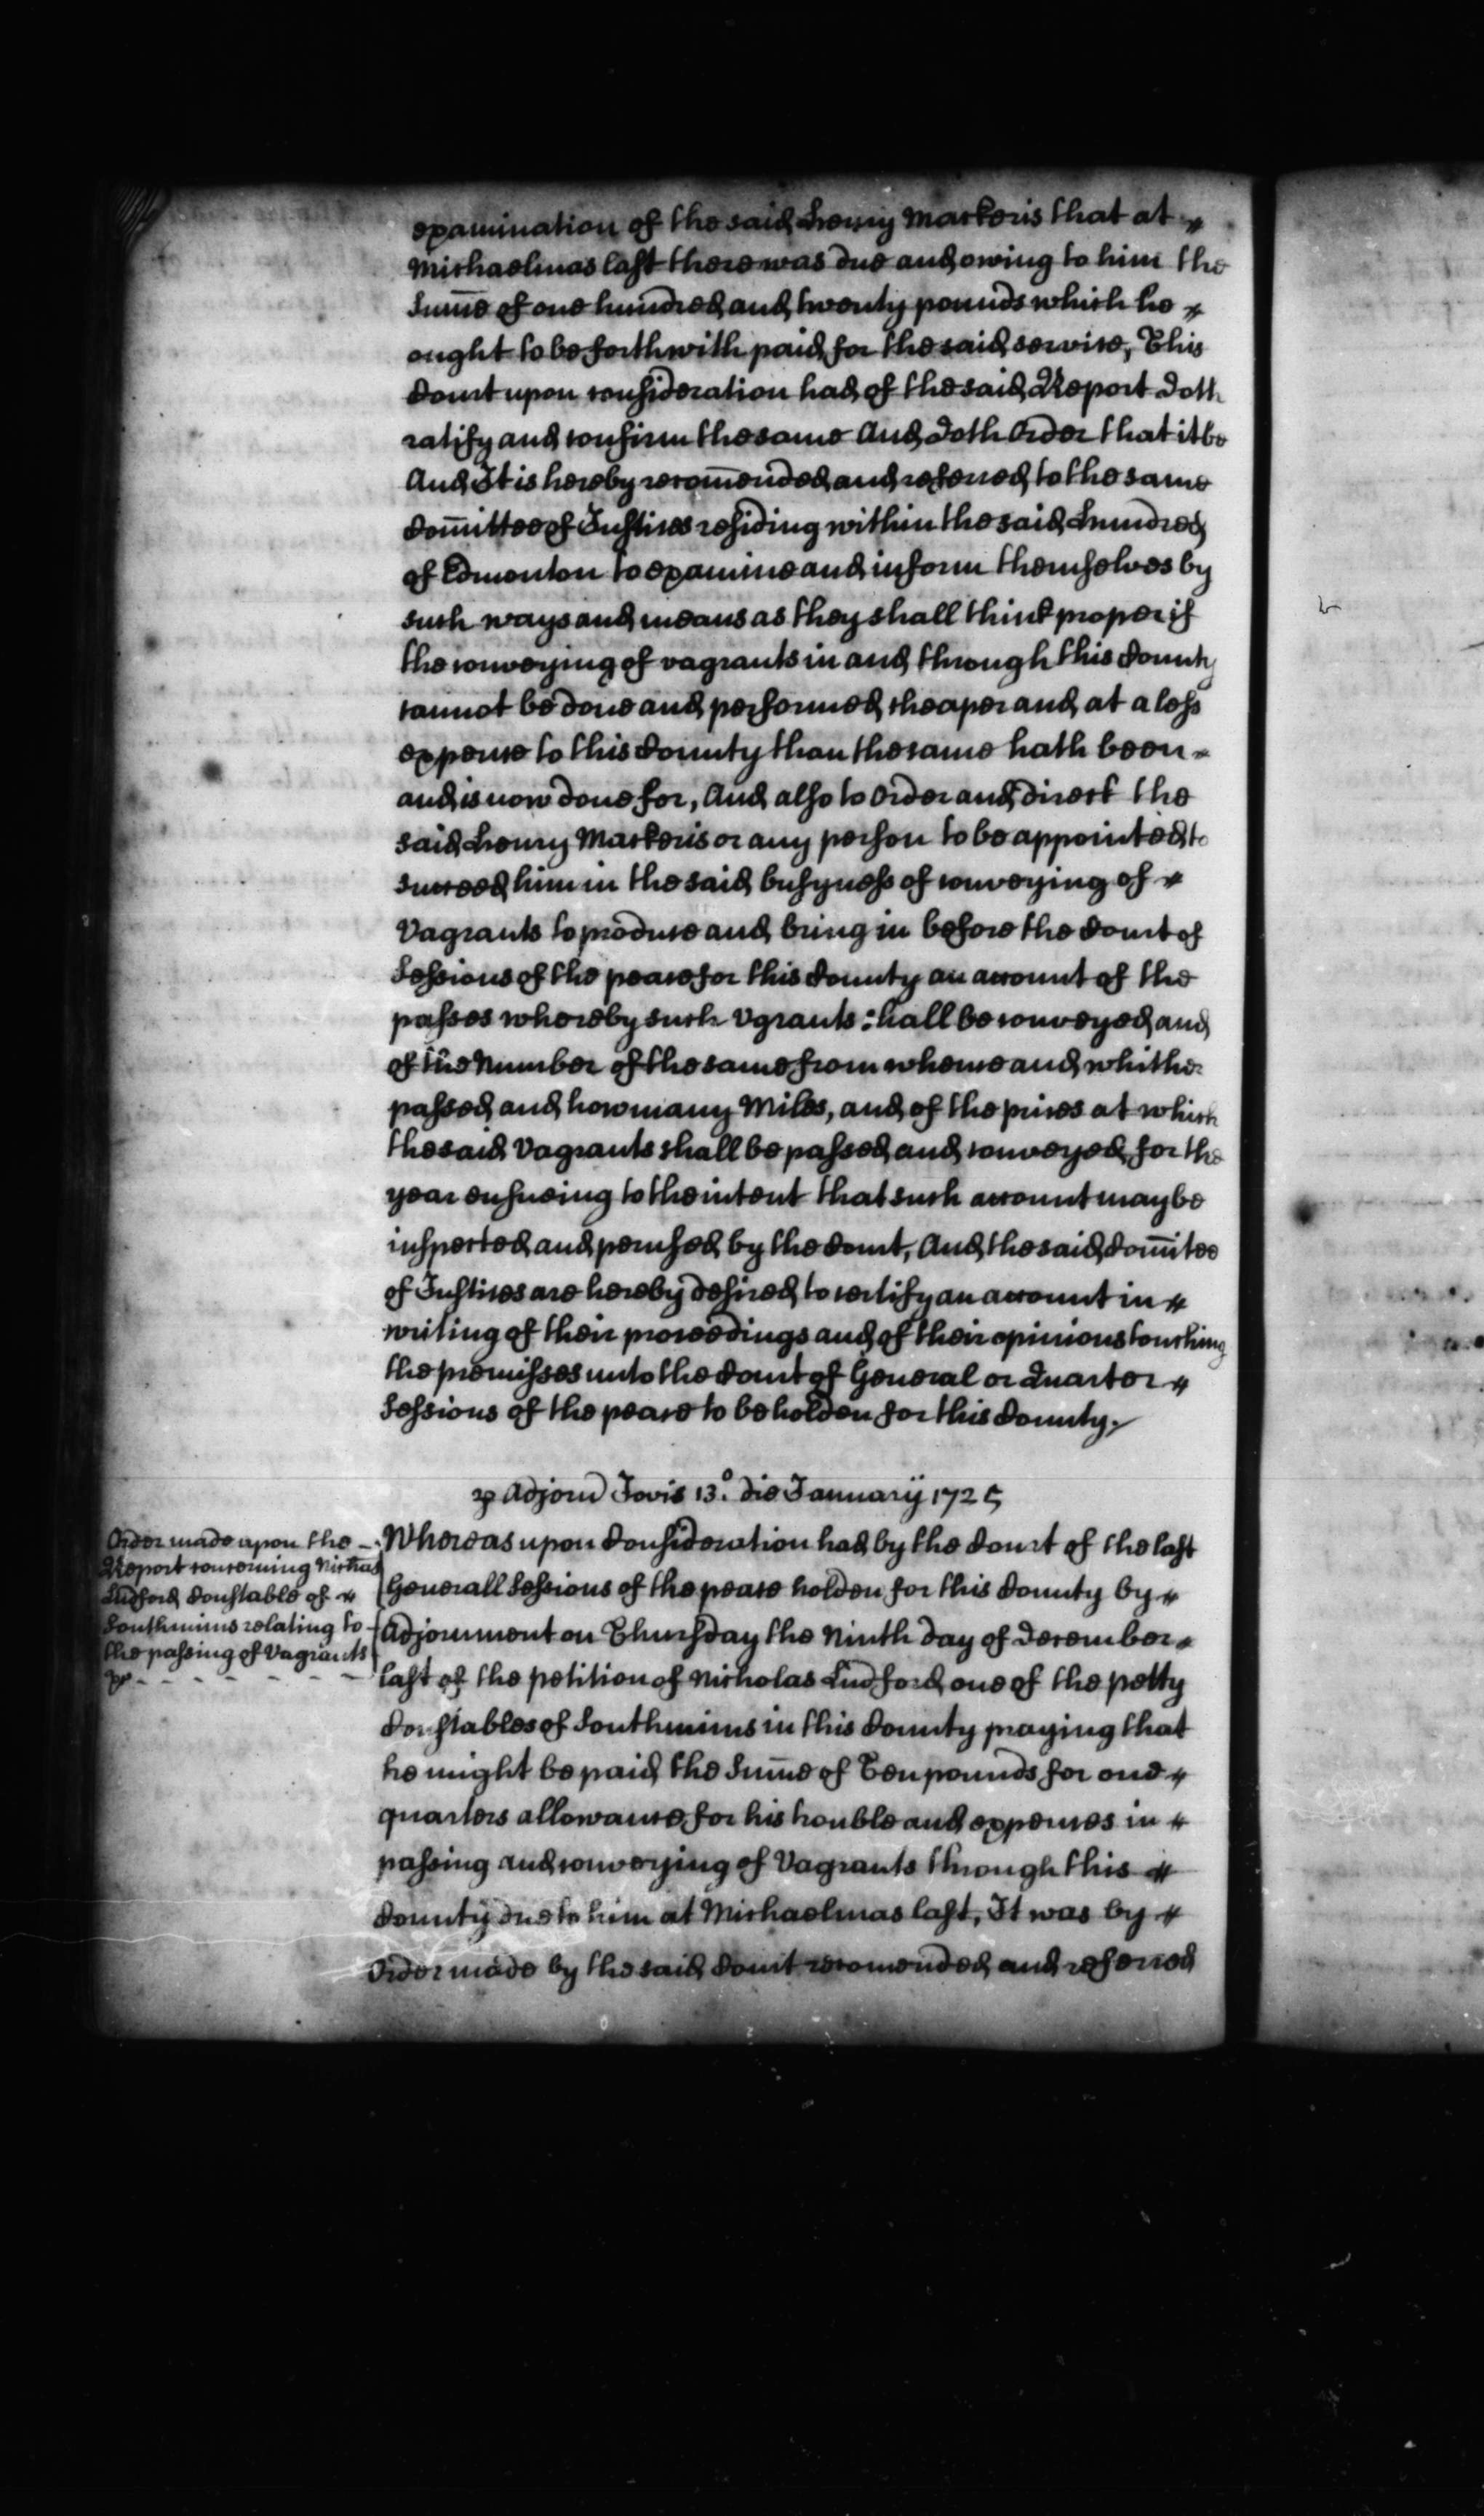 examination of the said Henry Mackeris that at
Michaelmas last there was due and owing to him the
Sum̄e of one hundred and twenty pounds which he
ought to be forthwith paid for the said service, This
Court upon consideration had of the said Report doth
ratify and confirm the same And doth Order that it be
And It is hereby recom̄ended and referred to the same
Com̄ittee of Justices residing within the said Hundred
of Edmonton to examine and inform themselves by
such ways and means as they shall think proper if
the conveying of vagrants in and through this County
cannot be done and performed cheaper and at a less
expence to this County than the same hath been
and is now done for, And also to Order and direct the
said Henry Mackeris or any person to be appointed to
succeed him in the said busyness of conveying of
Vagrants to produce and bring in before the Court of
Sessions of the peace for this County an account of the
passes whereby such Vgrants shall be conveyed and
of the Number of the same from whence and whither
passed and how many Miles, and of the prices at which
the said Vagrants shall be passed and conveyed for the
year ensueing to the intent that such account may be
inspected and perused by the Court, And the said Com̄itee
of Justices are hereby desired to certify an account in
writing of their proceedings and of their opinions touching
the premisses unto the Court of General or Quarter
Sessions of the peace to be holden for this County.
P Adjorn Jovis 13.° die January 1725
Order made upon the
Report concerning Nichas
Ludford Constable of
Southmims relating to
the passing of Vagrants
Whereas upon Consideration had by the Court of the last
Generall Sessions of the peace holden for this County by
Adjornment on Thursday the Ninth day of December
last of the petition of Nicholas Ludford one of the petty
Constables of Southmims in this County praying that
he might be paid the Sum̄e of Ten pounds for one
quarters allowance for his trouble and expences in
passing and conveying of Vagrants through this
County due to him at Michaelmas last, It was by
Order made by the said Court recomended and referred